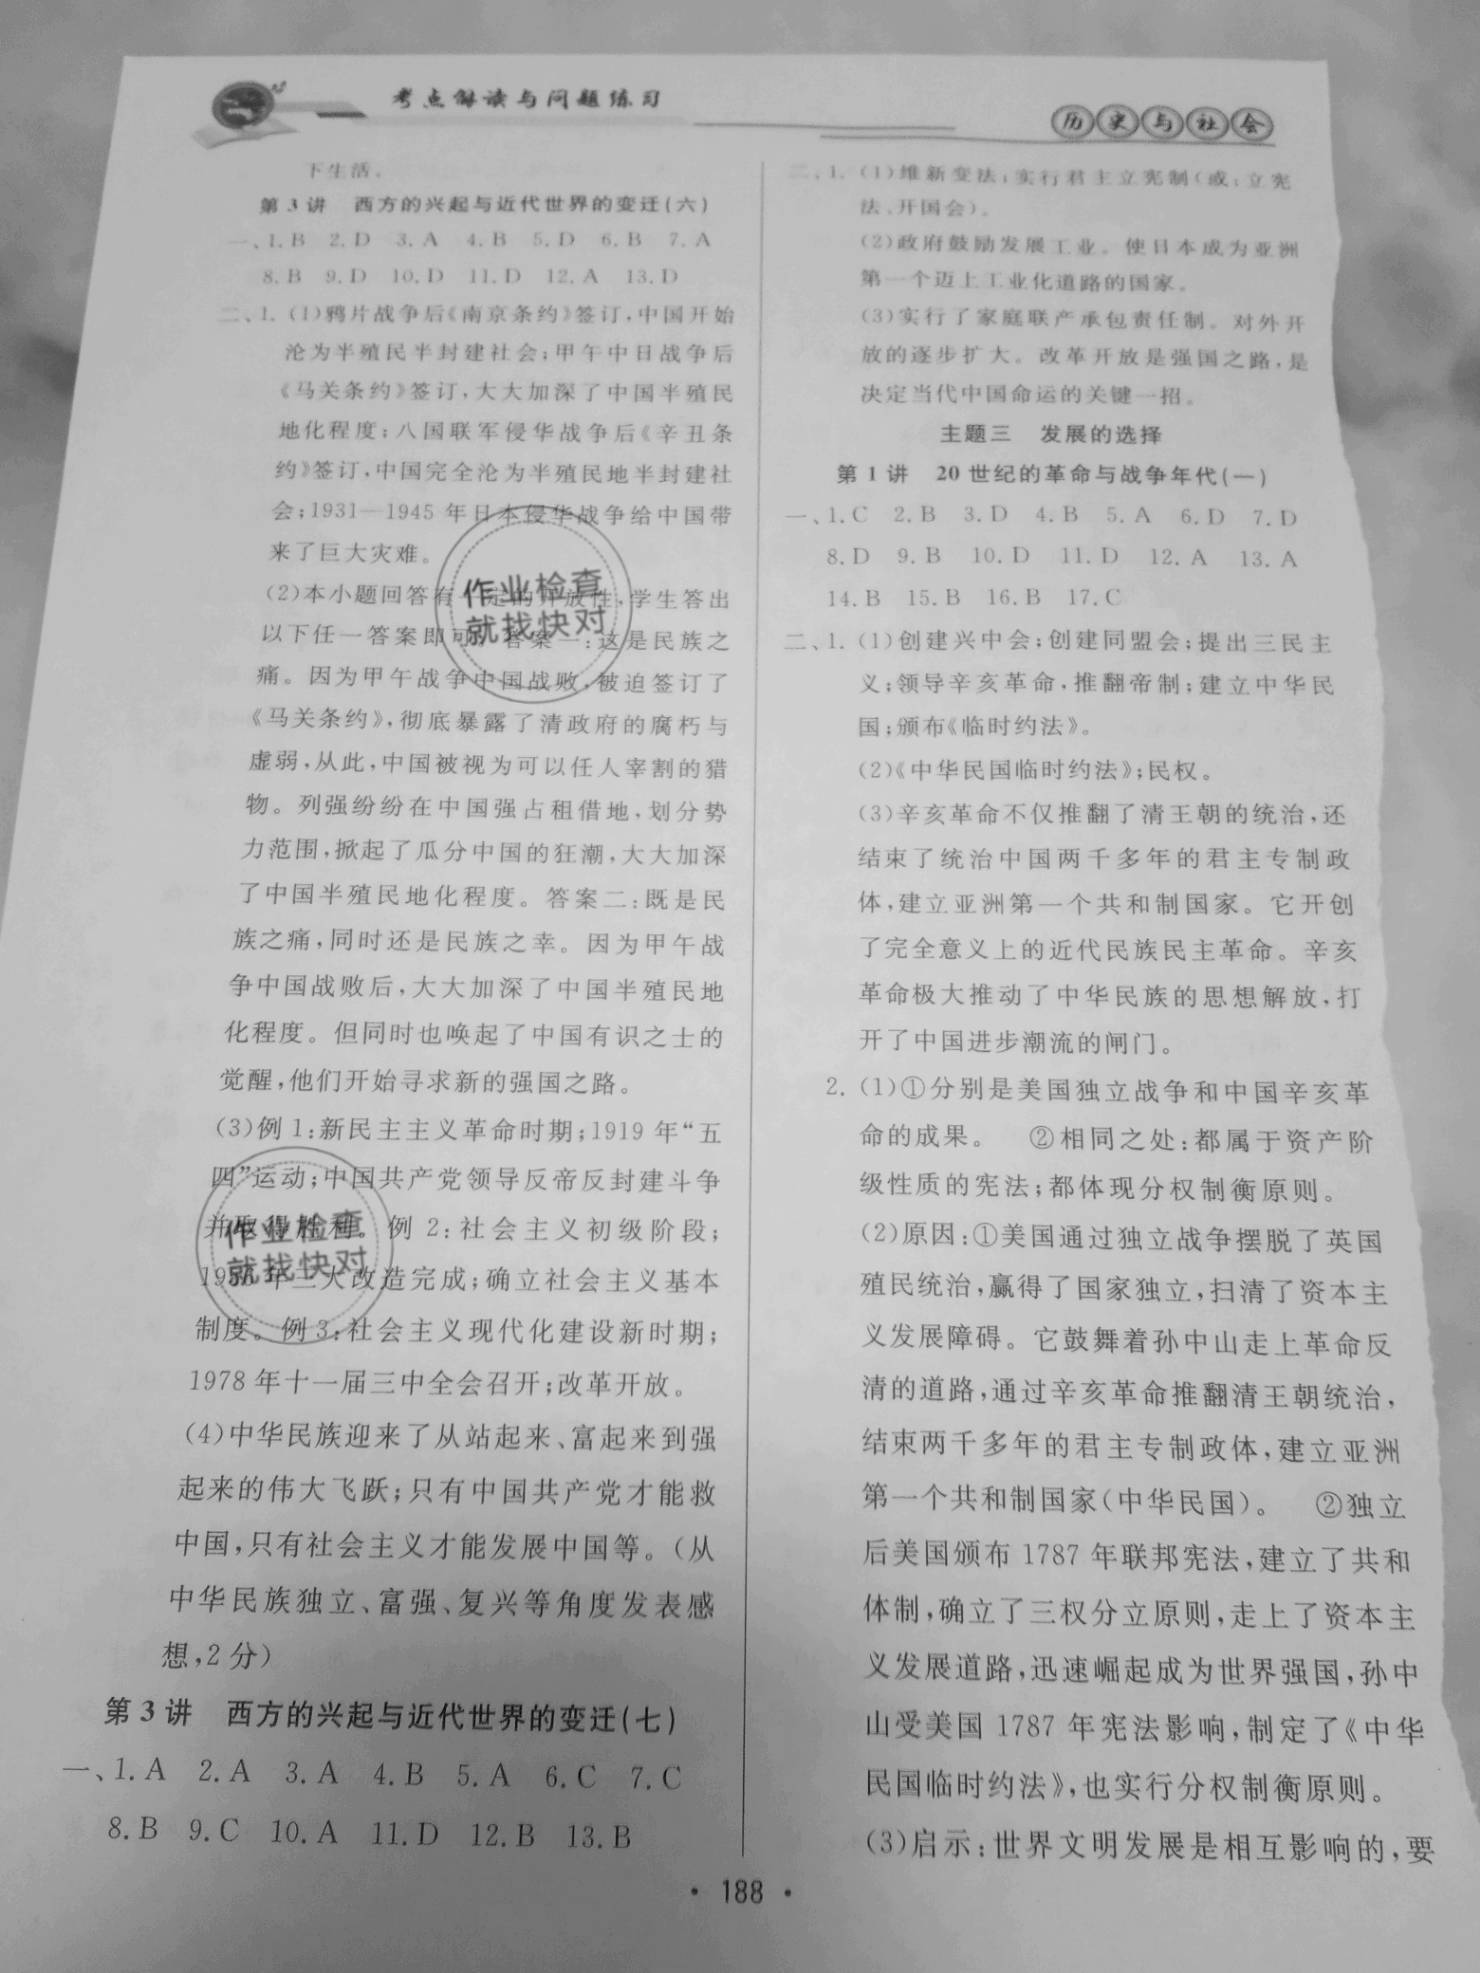 考点解读与问题练习
历史与社会
下生活。
第3讲 西方的兴起与近代世界的变迁(六)
一、1.B 2.D 3.A 4.B 5.D 6.B 7.A
8.B 9.D 10.D 11.D 12.A 13.D
二、1.(1)鸦片战争后《南京条约》签订,中国开始
沦为半殖民半封建社会;甲午中日战争后
《马关条约》签订,大大加深了中国半殖民
地化程度;八国联军侵华战争后《辛丑条
约》签订,中国完全沦为半殖民地半封建社
会;1931—1945年日本侵华战争给中国带
来了巨大灾难。
(2)本小题回答有一定的开放性,学生答出
以下任一答案即可。答案一:这是民族之
痛。因为甲午战争中国战败,被迫签订了
《马关条约》,彻底暴露了清政府的腐朽与
虚弱,从此,中国被视为可以任人宰割的猎
物。列强纷纷在中国强占租借地,划分势
力范围,掀起了瓜分中国的狂潮,大大加深
了中国半殖民地化程度。答案二:既是民
族之痛,同时还是民族之幸。因为甲午战
争中国战败后,大大加深了中国半殖民地
化程度。但同时也唤起了中国有识之士的
觉醒,他们开始寻求新的强国之路。
(3)例1:新民主主义革命时期;1919年“五
四”运动;中国共产党领导反帝反封建斗争
并取得胜利。例2:社会主义初级阶段;
1956年三大改造完成;确立社会主义基本
制度。例3:社会主义现代化建设新时期;
1978年十一届三中全会召开;改革开放。
(4)中华民族迎来了从站起来、富起来到强
起来的伟大飞跃;只有中国共产党才能救
中国,只有社会主义才能发展中国等。(从
中华民族独立、富强、复兴等角度发表感
想,2分)
第3讲 西方的兴起与近代世界的变迁(七)
一、1.A 2.A 3.A 4.B 5.A 6.C 7.C
8.B 9.C 10.A 11.D 12.B 13.B
二、1.(1)维新变法;实行君主立宪制(或:立宪
法、开国会)。
(2)政府鼓励发展工业。使日本成为亚洲
第一个迈上工业化道路的国家。
(3)实行了家庭联产承包责任制。对外开
放的逐步扩大。改革开放是强国之路,是
决定当代中国命运的关键一招。
主题三 发展的选择
第1讲 20世纪的革命与战争年代(一)
一、1.C 2.B 3.D 4.B 5.A 6.D 7.D
8.D 9.B 10.D 11.D 12.A 13.A
14.B 15.B 16.B 17.C
二、1.(1)创建兴中会;创建同盟会;提出三民主
义;领导辛亥革命,推翻帝制;建立中华民
国;颁布《临时约法》。
(2)《中华民国临时约法》;民权。
(3)辛亥革命不仅推翻了清王朝的统治,还
结束了统治中国两千多年的君主专制政
体,建立亚洲第一个共和制国家。它开创
了完全意义上的近代民族民主革命。辛亥
革命极大推动了中华民族的思想解放,打
开了中国进步潮流的闸门。
2.(1)①分别是美国独立战争和中国辛亥革
命的成果。 ②相同之处:都属于资产阶
级性质的宪法;都体现分权制衡原则。
(2)原因:①美国通过独立战争摆脱了英国
殖民统治,赢得了国家独立,扫清了资本主
义发展障碍。它鼓舞着孙中山走上革命反
清的道路,通过辛亥革命推翻清王朝统治,
结束两千多年的君主专制政体,建立亚洲
第一个共和制国家(中华民国)。 ②独立
后美国颁布1787年联邦宪法,建立了共和
体制,确立了三权分立原则,走上了资本主
义发展道路,迅速崛起成为世界强国,孙中
山受美国1787年宪法影响,制定了《中华
民国临时约法》,也实行分权制衡原则。
(3)启示:世界文明发展是相互影响的,要
·188·
作业检查
就找快对
作业检查
就找快对